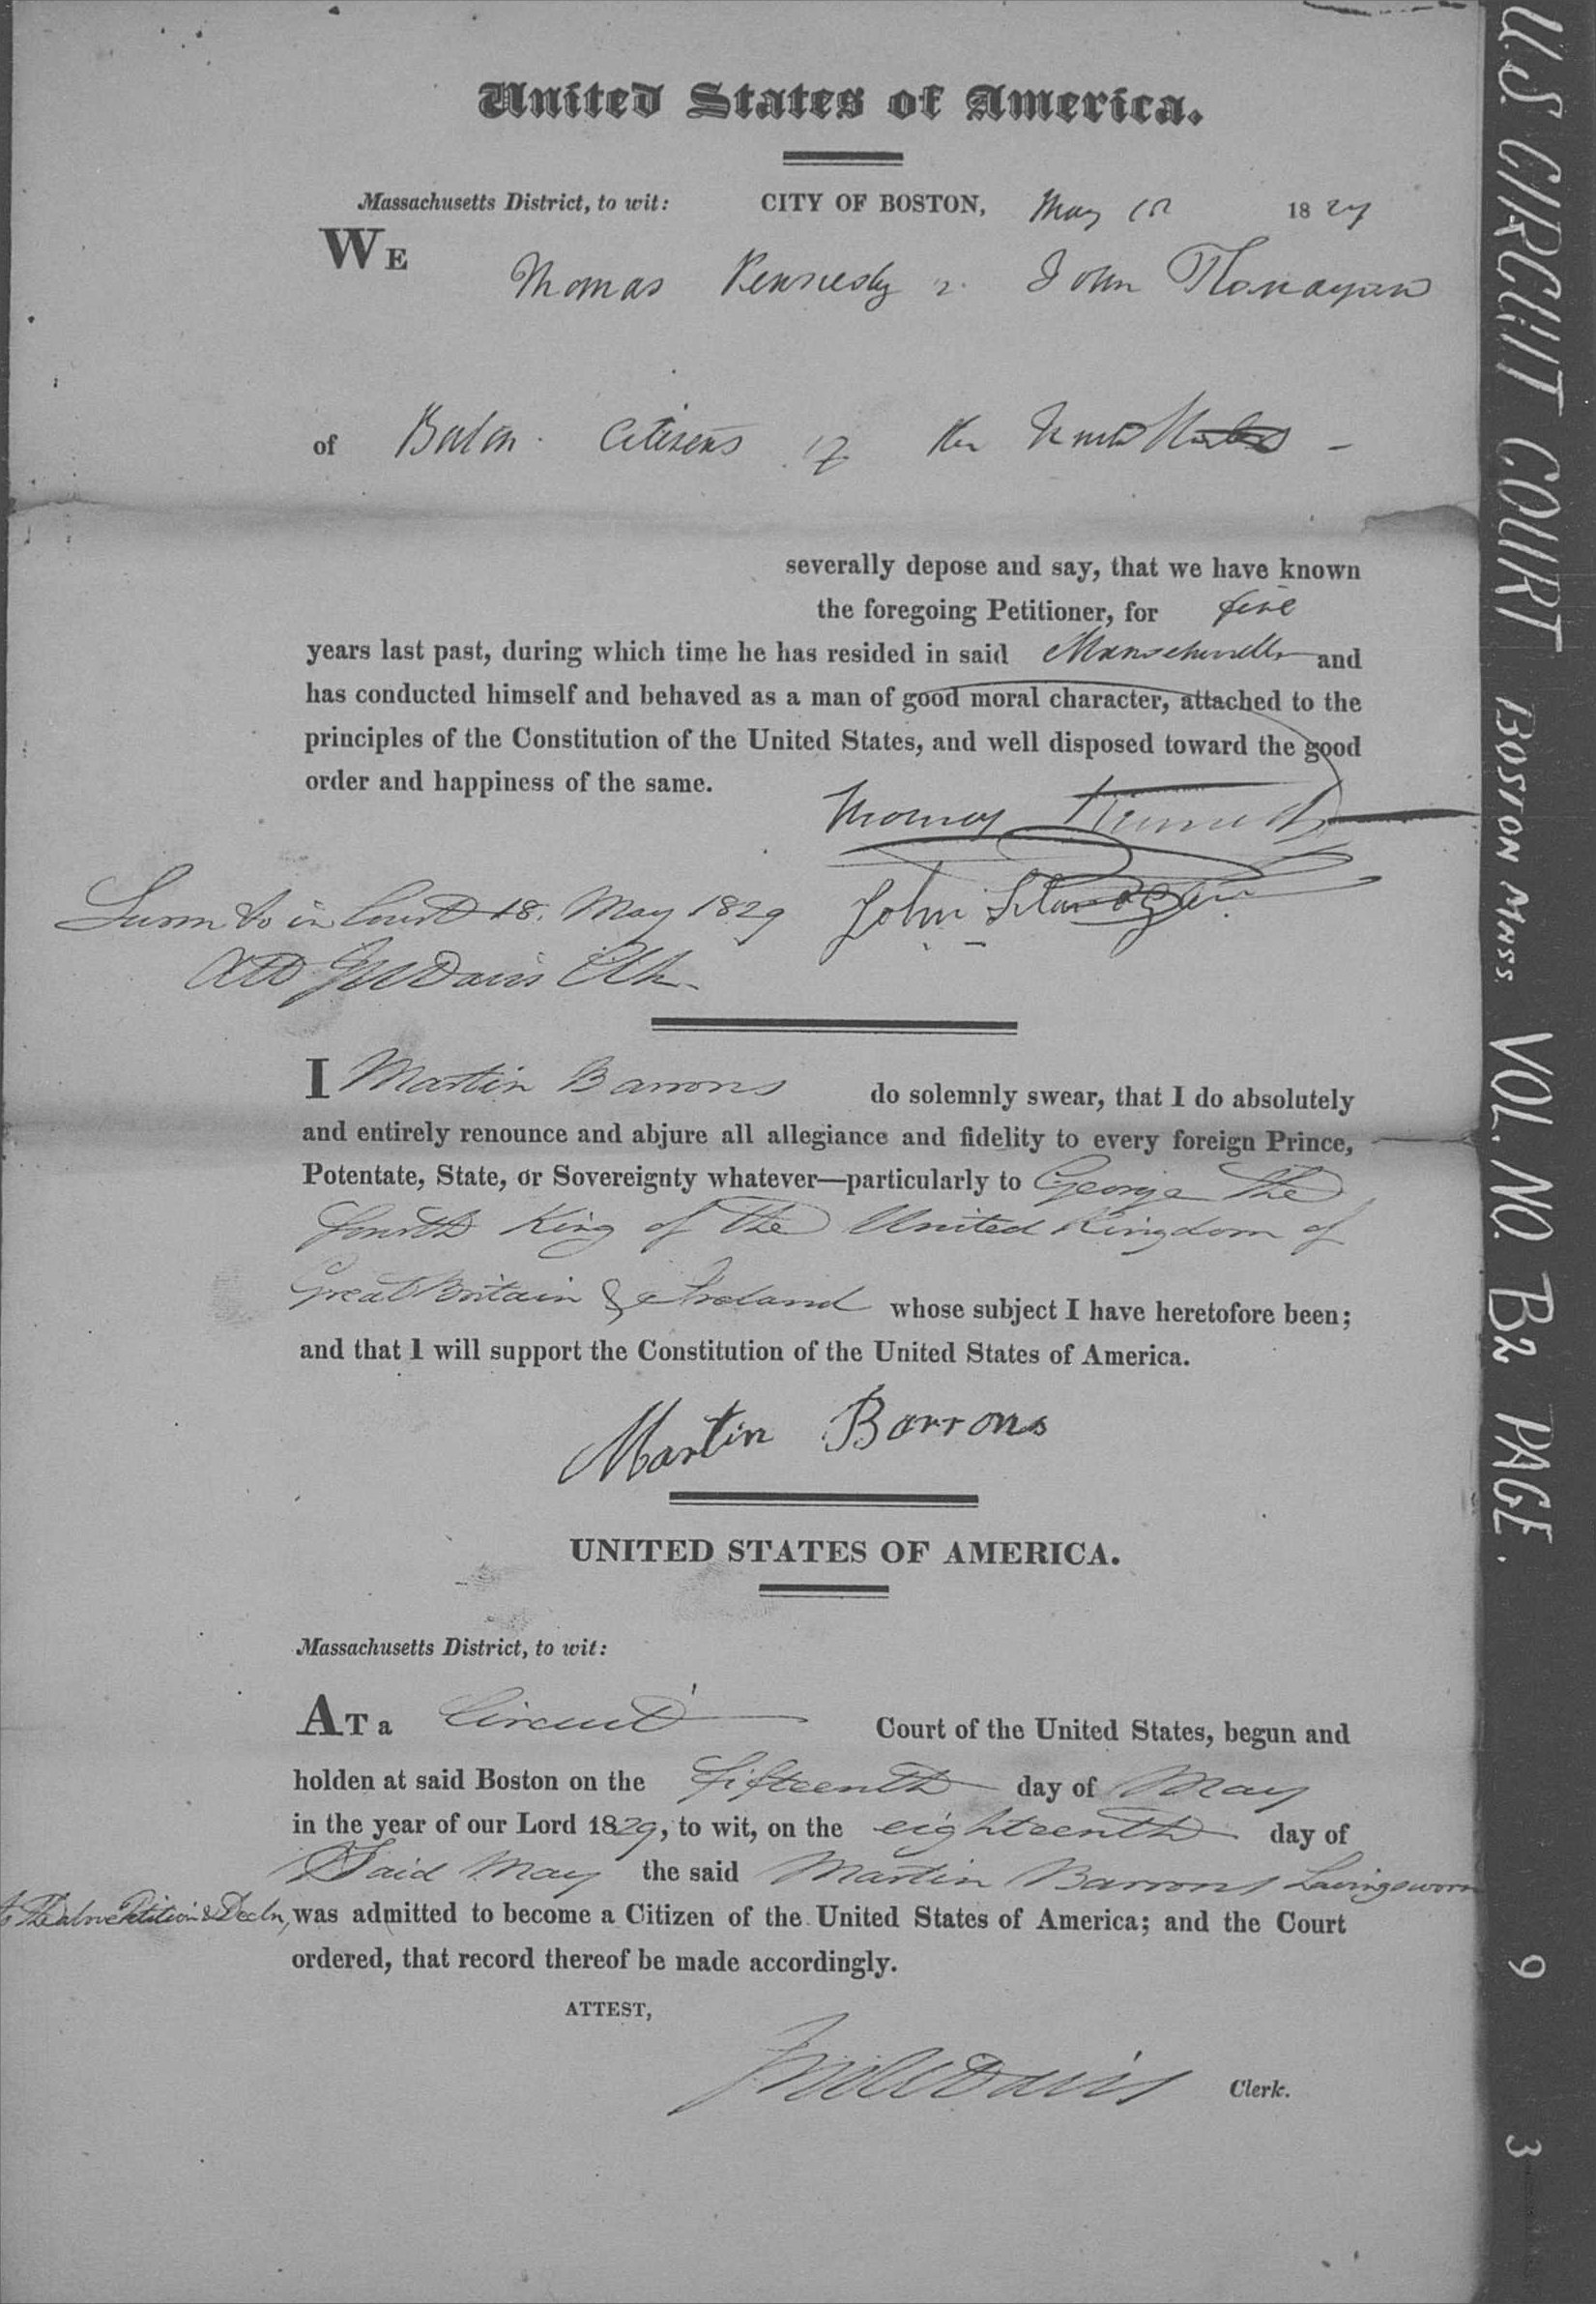 United States of America.
Massachusetts District, to wit: CITY OF BOSTON, May 18 1829
WE Thomas Kennedy & John Flanagan
of Boston Citizens of the United States –
severally depose and say, that we have known
the foregoing Petitioner, for five
years last past, during which time he has resided in said Massachusetts and
has conducted himself and behaved as a man of good moral character, attached to the
principles of the Constitution of the United States, and well disposed toward the good
order and happiness of the same.
Thomas Kennedy
Sworn to in Court 18. May 1829 John Flanagan
Att Davis Clk.
I Martin Barrons do solemnly swear, that I do absolutely
and entirely renounce and abjure all allegiance and fidelity to every foreign Prince,
Potentate, State, or Sovereignty whatever—particularly to George the
fourth King of the United Kingdom of
Great Britain & Ireland whose subject I have heretofore been;
and that I will support the Constitution of the United States of America.
Martin Barrons
UNITED STATES OF AMERICA.
Massachusetts District, to wit:
AT a Circuit Court of the United States, begun and
holden at said Boston on the fifteenth day of May
in the year of our Lord 1829, to wit, on the eighteenth day of
Said May the said Martin Barrons having sworn
to the above Petition & Decln, was admitted to become a Citizen of the United States of America; and the Court
ordered, that record thereof be made accordingly.
ATTEST,
Davis Clerk.
U.S. CIRCUIT COURT BOSTON MASS. VOL. NO. B2 PAGE. 9 3